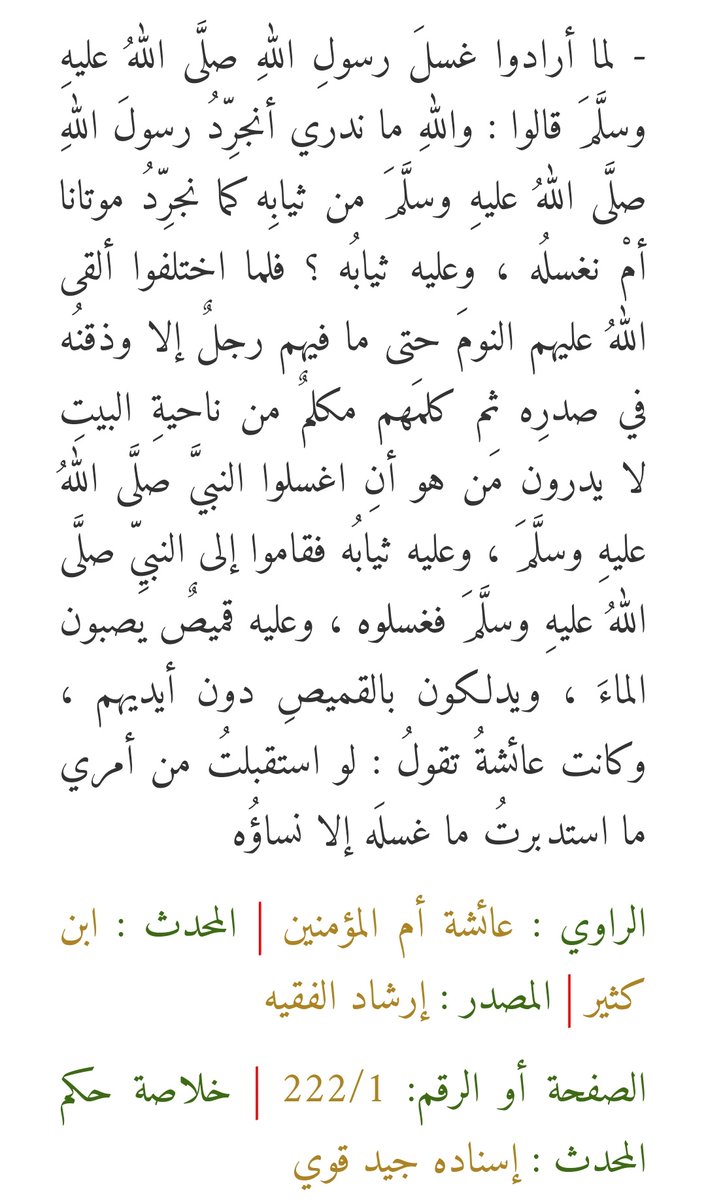 - لما أرادوا غسلَ رسولِ اللهِ صلَّى اللهُ عليهِ
وسلَّمَ قالوا : واللهِ ما ندري أنجرِّدُ رسولَ اللهِ
صلَّى اللهُ عليهِ وسلَّمَ من ثيابِه كما نجرِّدُ موتانا
أمْ نغسلُه ، وعليه ثيابُه ؟ فلما اختلفوا ألقى
اللهُ عليهم النومَ حتى ما فيهم رجلٌ إلا وذقنُه
في صدرِه ثم كلمَهم مكلمٌ من ناحيةِ البيتِ
لا يدرون مَن هو أنِ اغسلوا النبيَّ صلَّى اللهُ
عليهِ وسلَّمَ ، وعليه ثيابُه فقاموا إلى النبيِّ صلَّى
اللهُ عليهِ وسلَّمَ فغسلوه ، وعليه قميصٌ يصبون
الماءَ ، ويدلكون بالقميصِ دون أيديهم ،
وكانت عائشةُ تقولُ : لو استقبلتُ من أمري
ما استدبرتُ ما غسلَه إلا نساؤُه
الراوي : عائشة أم المؤمنين | المحدث : ابن
كثير | المصدر : إرشاد الفقيه
الصفحة أو الرقم: 222/1 | خلاصة حكم
المحدث : إسناده جيد قوي